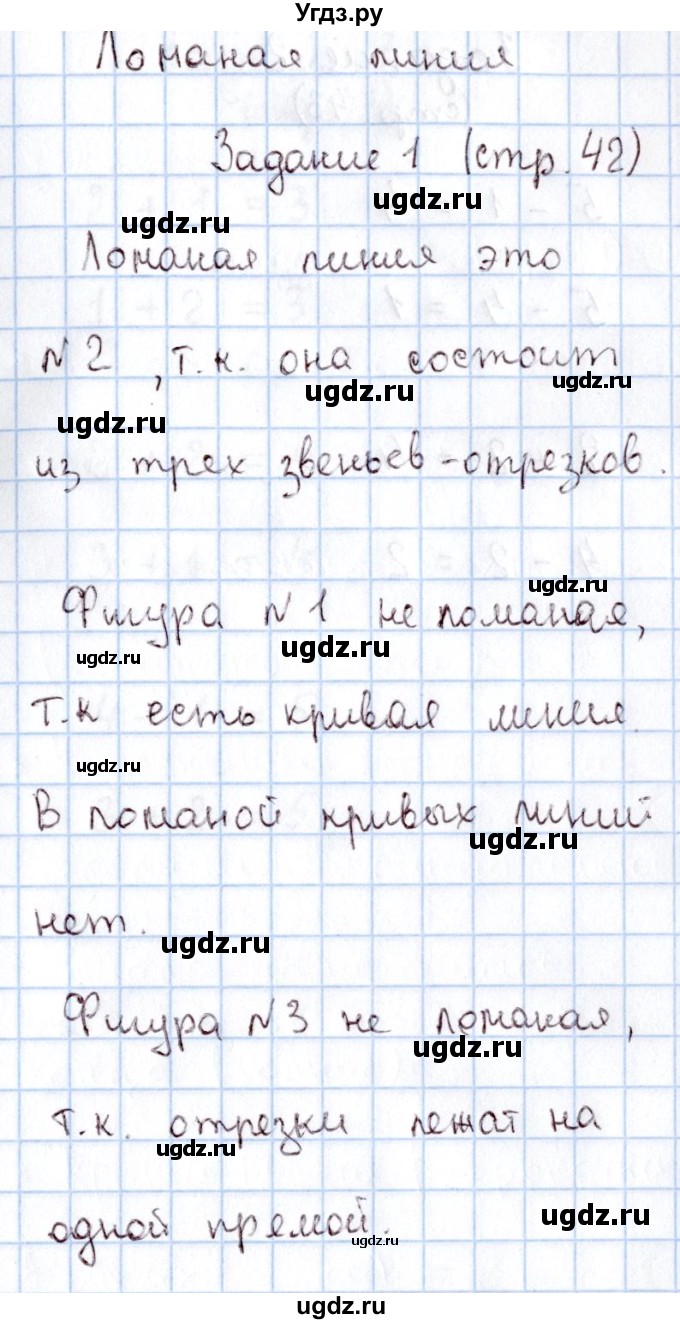 Угдз.ру
Ломаная линия
Задание 1 (стр. 42)
ugdz.ru
ugdz.ru
Ломаная линия это
№2, т.к. она состоит
ugdz.ru
ugdz.ru
ugdz.ru
из трех звеньев-отрезков.
ugdz.ru
Фигура №1 не ломаная,
ugdz.ru
ugdz.ru
т.к есть кривая линия.
ugdz.ru
В ломаной кривых линий
ugdz.ru
нет.
ugdz.ru
Фигура №3 не ломаная,
ugdz.ru
т.к. отрезки лежат на
ugdz.ru
одной прямой.
ugdz.ru
ugdz.ru
ugdz.ru